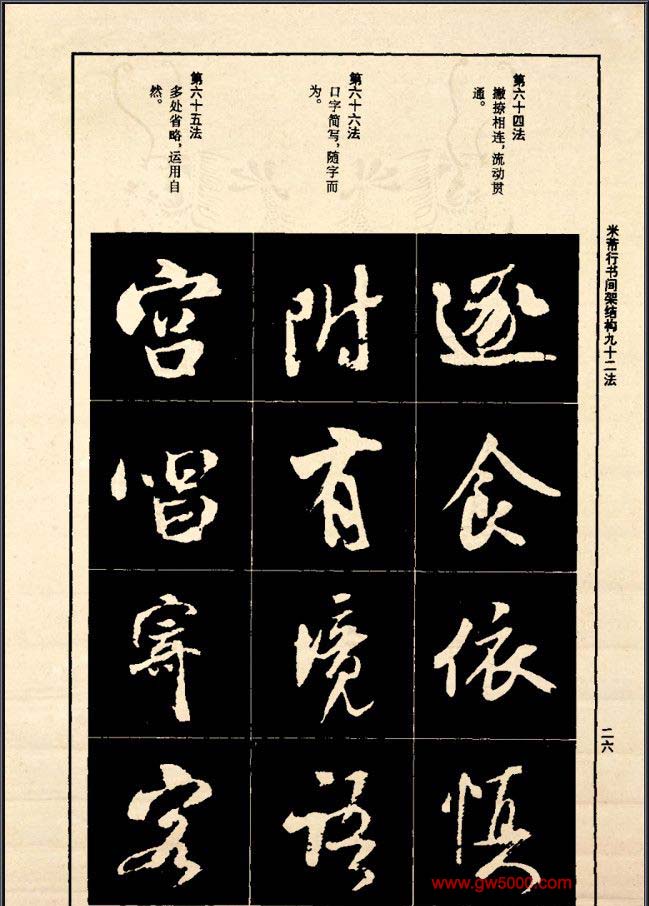 米芾行书间架结构九十二法
二六
第六十四法
撇捺相连，流动贯
通。
第六十六法
口字简写，随字而
为。
第六十五法
多处省略，运用自
然。
逐食依慎
附有境語
宫唱寄客
www.gw5000.com